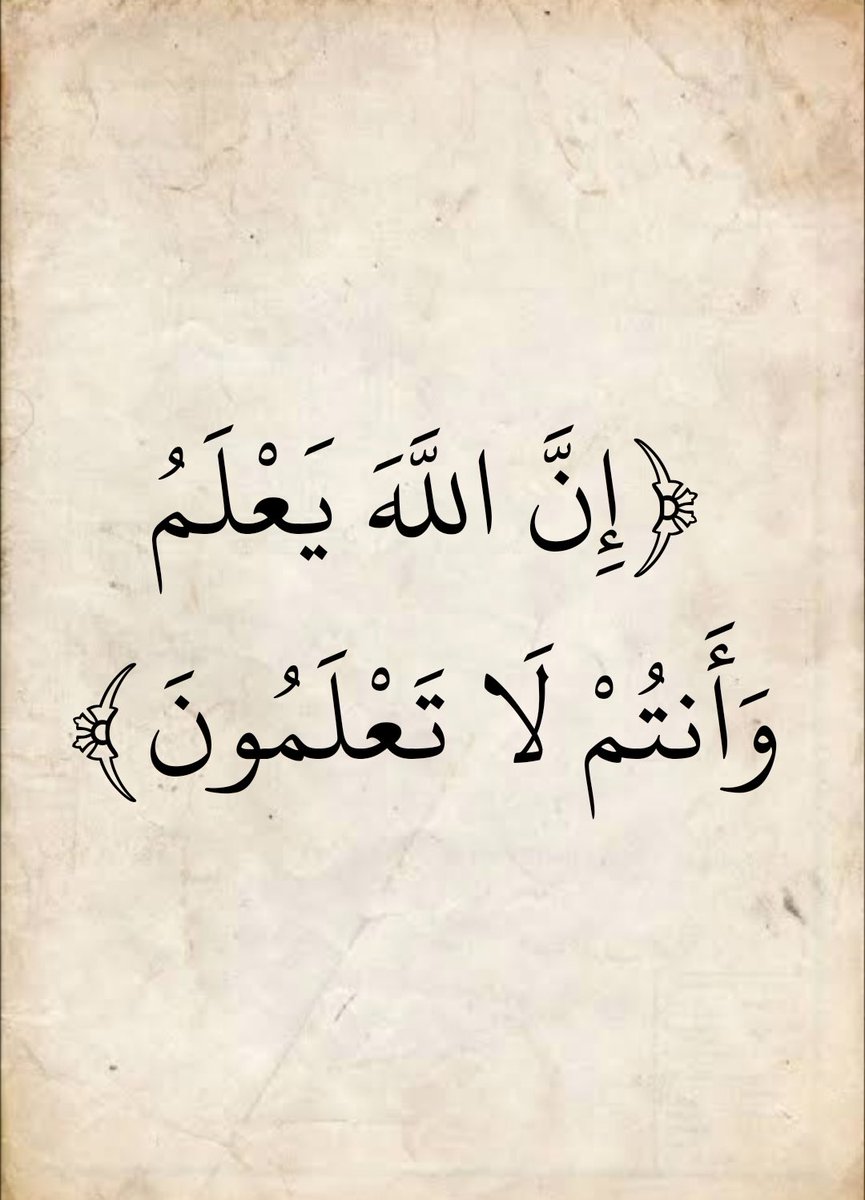 ﴿إِنَّ اللَّهَ يَعْلَمُ
وَأَنتُمْ لَا تَعْلَمُونَ﴾